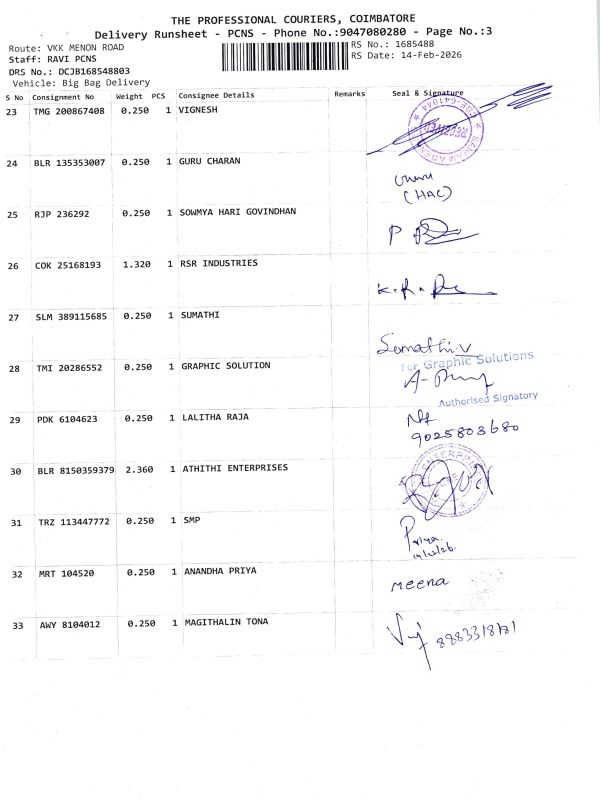 THE PROFESSIONAL COURIERS, COIMBATORE
Delivery Runsheet - PCNS - Phone No.:9047080280 - Page No.:3
Route: VKK MENON ROAD
RS No.: 1685488
Staff: RAVI PCNS
RS Date: 14-Feb-2026
DRS No.: DCJB168548803
Vehicle: Big Bag Delivery
S No Consignment No Weight PCS Consignee Details Remarks Seal & Signature
23 TMG 200867408 0.250 1 VIGNESH
RECEIVED
24 BLR 135353007 0.250 1 GURU CHARAN
(HAC)
25 RJP 236292 0.250 1 SOWMYA HARI GOVINDHAN
P
26 COK 25168193 1.320 1 RSR INDUSTRIES
K.R.
27 SLM 389115685 0.250 1 SUMATHI
Sumathi.V
for Graphic Solutions
28 TMI 20286552 0.250 1 GRAPHIC SOLUTION
Authorised Signatory
29 PDK 6104623 0.250 1 LALITHA RAJA
9025803680
30 BLR 8150359379 2.360 1 ATHITHI ENTERPRISES
31 TRZ 113447772 0.250 1 SMP
Priya
32 MRT 104520 0.250 1 ANANDHA PRIYA
Meena
33 AWY 8104012 0.250 1 MAGITHALIN TONA